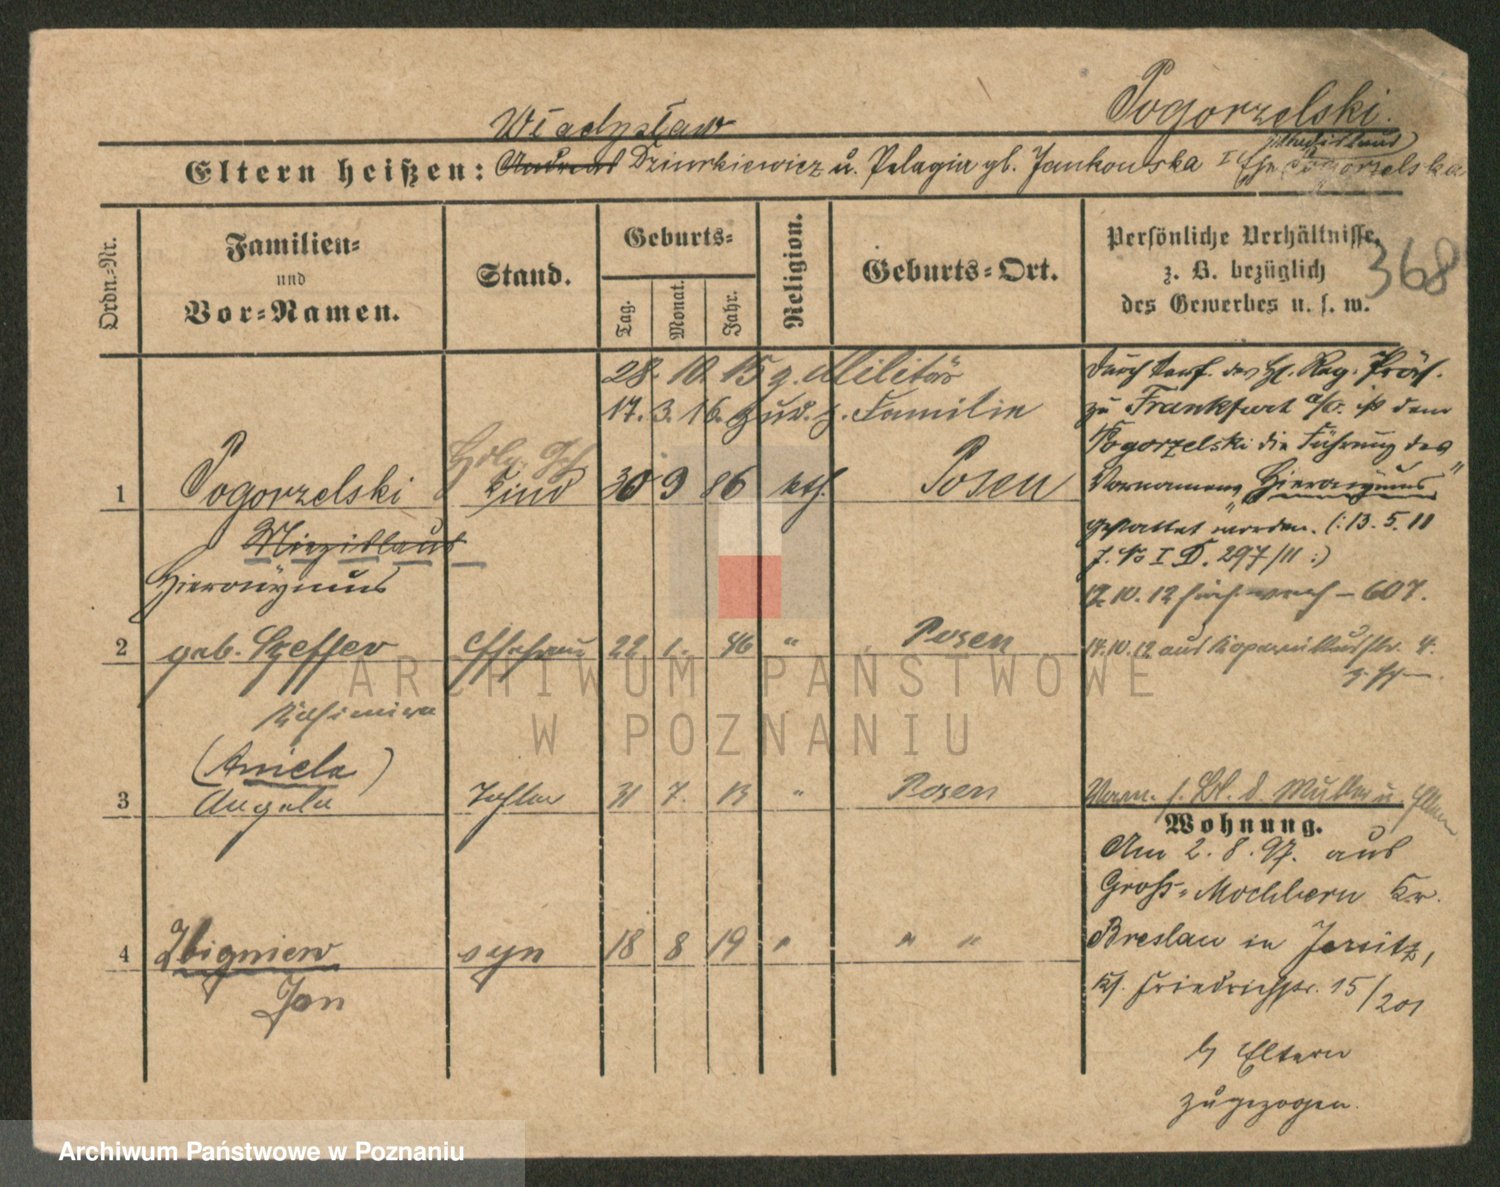 Pogorzelski.
Władysław
Eltern heißen: Andreas Dziurkiewicz u. Pelagia gb. Jankowska I Ehe Pogorzelska
Ordn.-Nr.
Familien-
und
Vor-Namen.
Stand.
Geburts-
Tag.
Monat.
Jahr.
Religion.
Geburts-Ort.
Persönliche Verhältnisse,
z. B. bezüglich
des Gewerbes u. s. w.
368
28. 10. 15 z. Militär
17. 3. 16. zur. z. Familie
1 Pogorzelski Kind 30 9 86 kth. Posen
Miezislaus
Hieronymus
2 geb. Szeffer Ehefrau 22 1. 96 " Posen
Kasimira
(Aniela)
3 Angela Tochter 31 7. 13 " Posen
4 Zbigniew syn 18 8 19 " " "
Jan
Durch Verf. des H. Reg. Präs.
zu Frankfurt a/O. ist dem
Pogorzelski die Führung des
Vornamens "Hieronymus"
gestattet worden. (: 13. 5. 11
J. No I D. 297/11 :)
12. 10. 12 – 607.
14. 10. 12 aus Kopernikusstr. 4.
Verm. s. Bl. d. Mutter u.
Wohnung.
Am 2. 8. 97. aus
Groß-Mochbern Kr.
Breslau in Jersitz,
Kf. Friedrichstr. 15/201
b/ Eltern
zugezogen.
ARCHIWUM PAŃSTWOWE
W POZNANIU
Archiwum Państwowe w Poznaniu